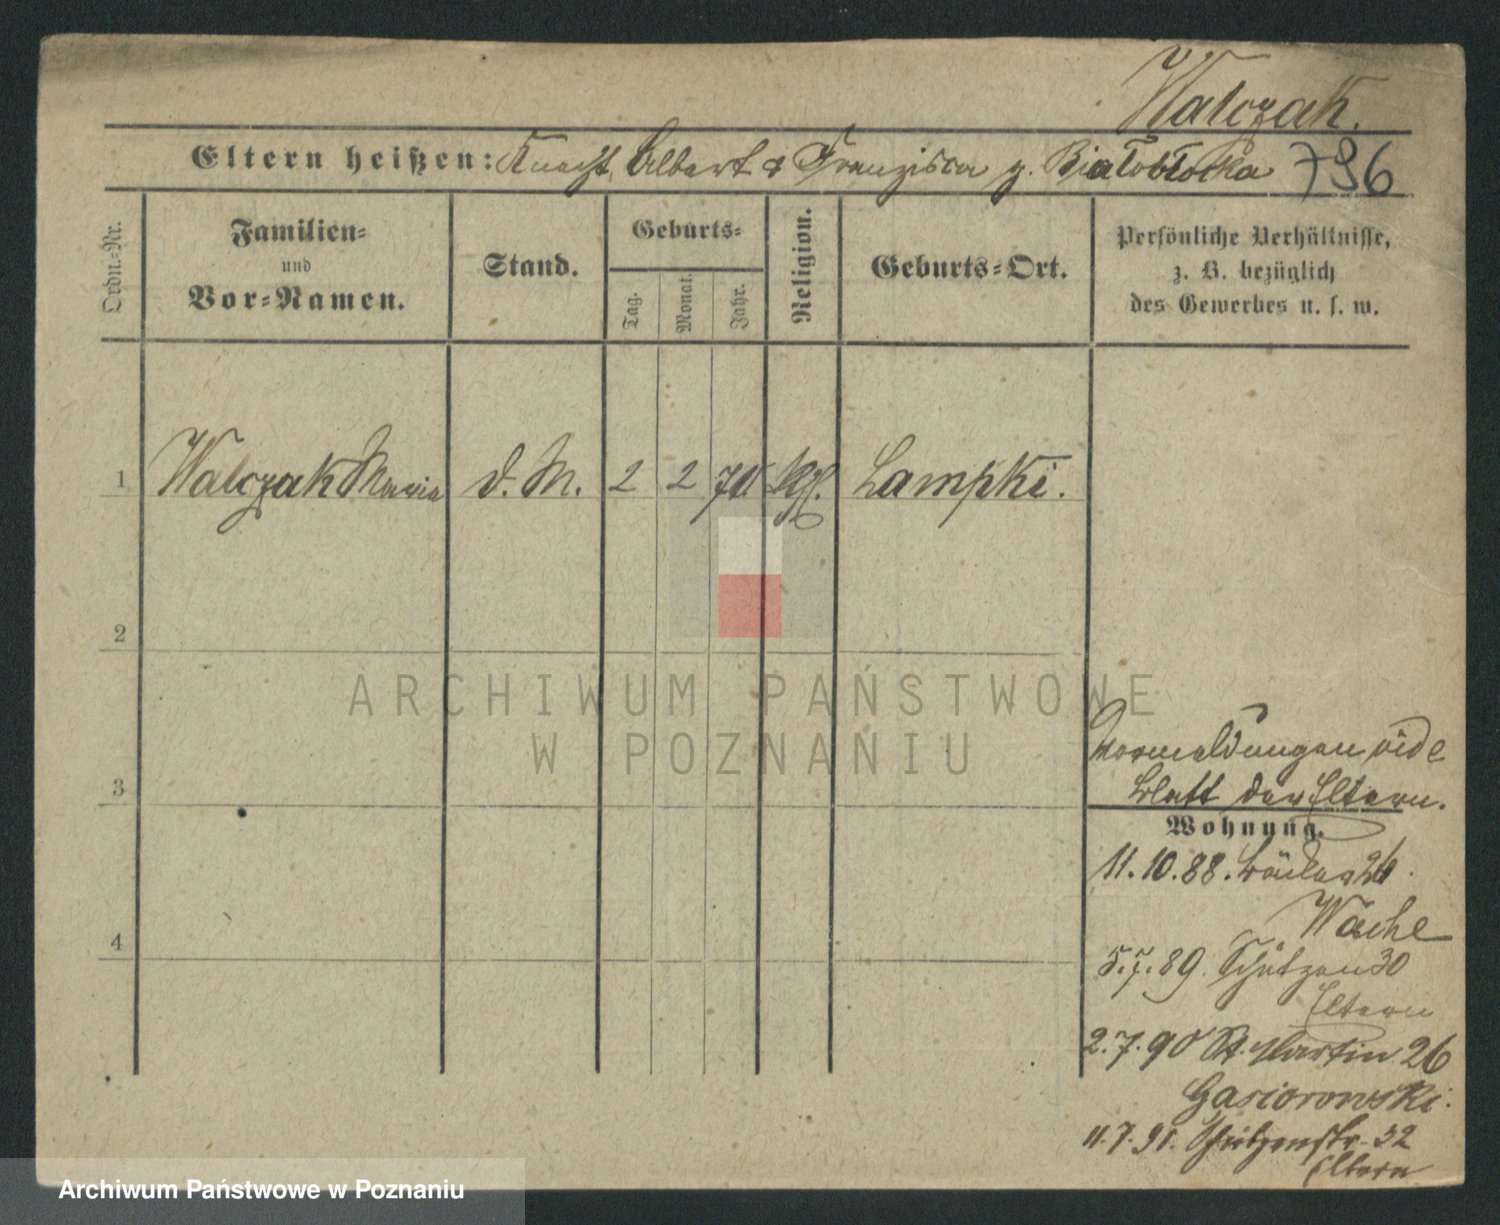 Walczak.
Eltern heißen: Knecht Albert & Francisca g. Białobłocka 796
Ordn.-Nr.
Familien-
und
Vor-Namen.
Stand.
Geburts-
Tag.
Monat.
Jahr.
Religion.
Geburts-Ort.
Persönliche Verhältnisse,
z. B. bezüglich
des Gewerbes u. s. w.
1 Walczak Maria d. M. 2 2 70 Kth. Lampki.
2
3
4
Vormeldungen vide
Blatt der Eltern.
Wohnung.
11.10.88. 26
Wache
5.7.89. Schützen 30
Eltern
2.7.90 St. Martin 26
Gasiorowski.
11.7.91. Schützenstr. 32
Eltern
ARCHIWUM PAŃSTWOWE
W POZNANIU
Archiwum Państwowe w Poznaniu